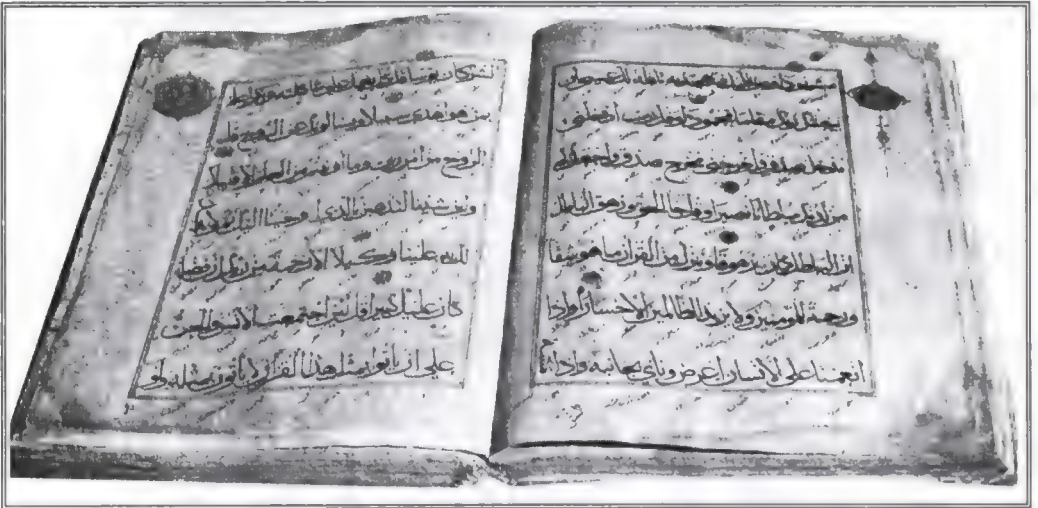 مشهودا ومن الليل فتهجد به نافلة لك عسى ان
يبعثك ربك مقاما محمودا وقل رب أدخلني
مدخل صدق واخرجني مخرج صدق واجعل لي
من لدنك سلطانا نصيرا وقل جا الحق وزهق الباطل
ان الباطل كان زهوقا وننزل من القران ما هو شفا
ورحمة للمومنين ولا يزيد الظالمين الا خسارا واذا
انعمنا على الانسان اعرض وناي بجانبه واذا
كان يوسا قل كل يعمل على شاكلته فربكم اعلم
بمن هو اهدى سبيلا ويسلونك عن الروح قل
الروح من امر ربي وما اوتيتم من العلم الا قليلا
ولين شينا لنذهبن بالذي اوحينا اليك ثم لا تجد
لك به علينا وكيلا الا رحمة من ربك ان فضله
كان عليك كبيرا قل لين اجتمعت الانس والجن
على ان ياتوا بمثل هذا القران لا ياتون بمثله ولو